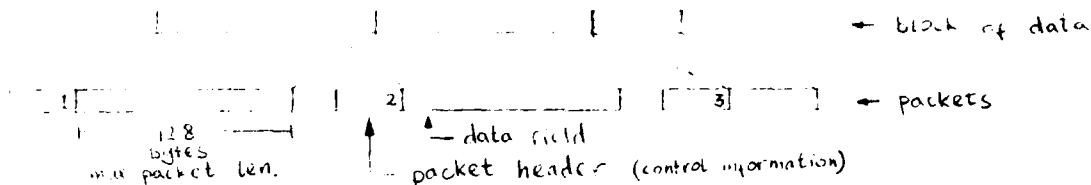 ← block of data
1 2 3 ← packets
128
bytes
max packet len.
data field
packet header (control information)